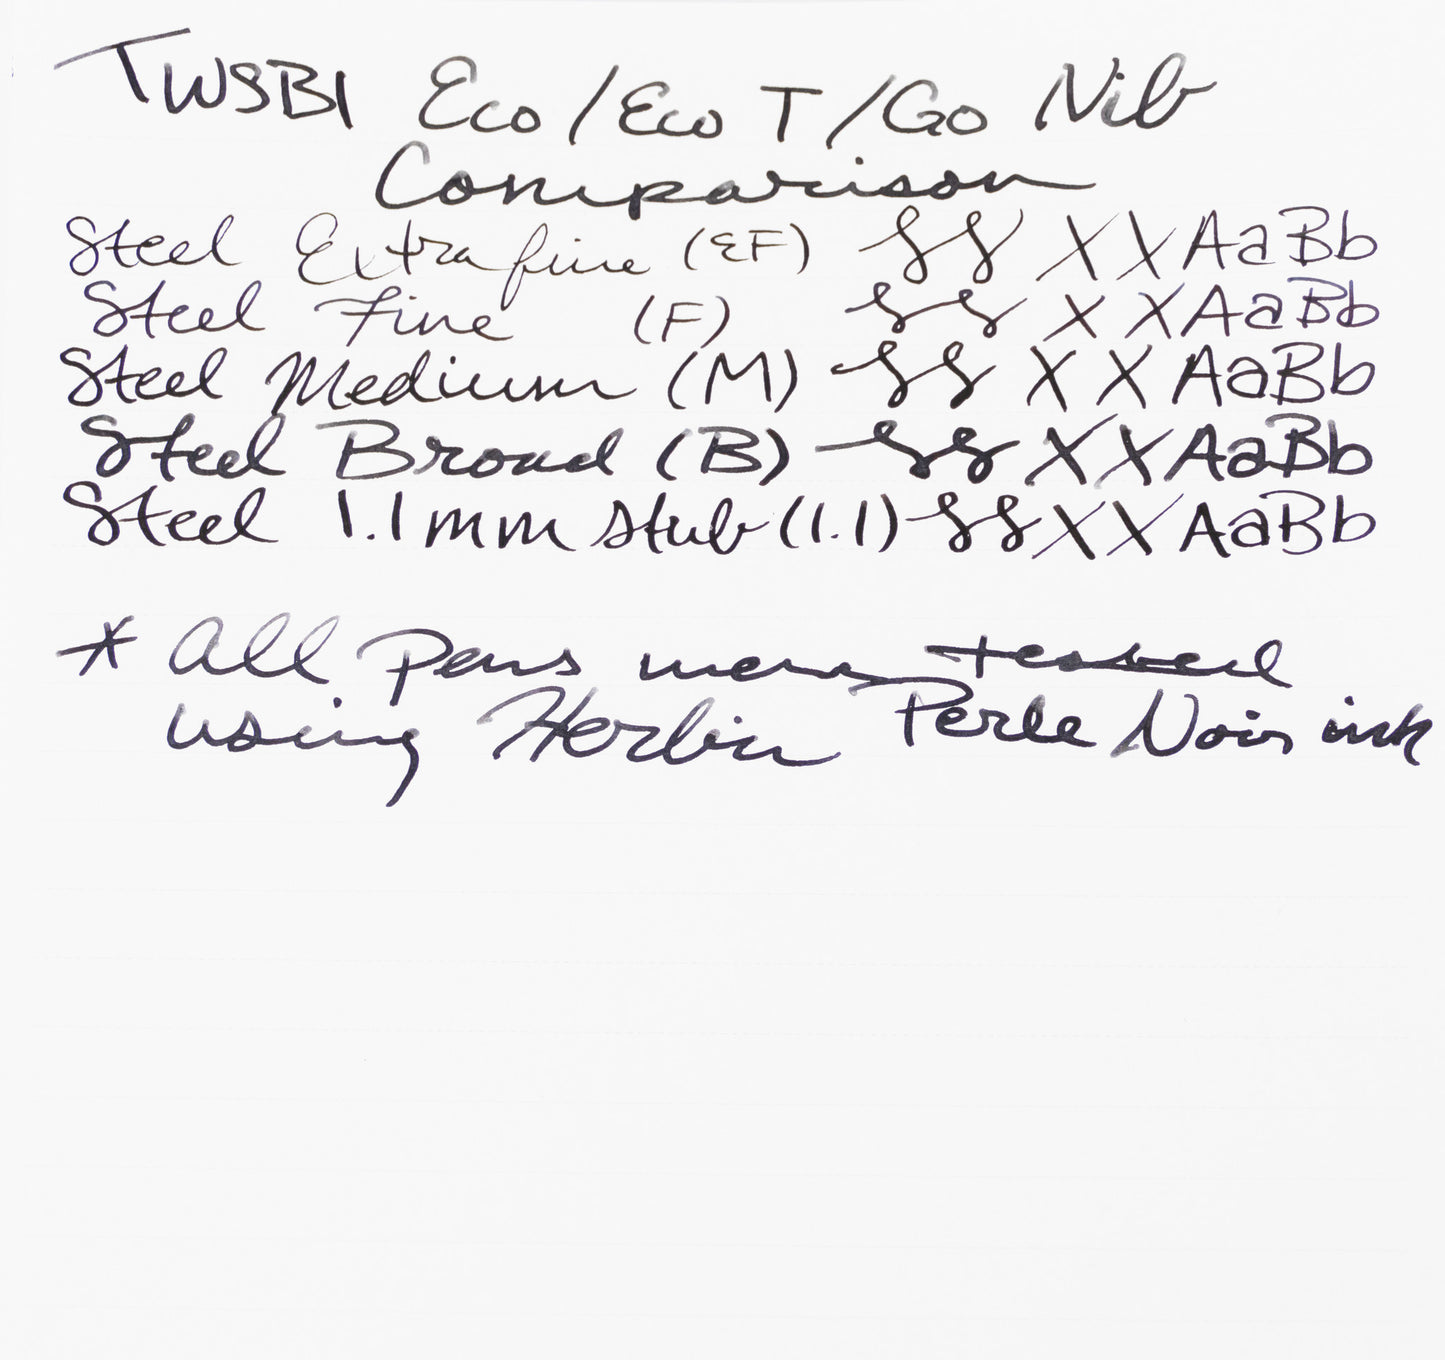 TWSBI Eco/Eco T/Go Nib
Comparison
Steel Extra fine (EF) SS X X AaBb
Steel Fine (F) ss X X AaBb
Steel Medium (M) ss X X AaBb
Steel Broad (B) ss X X AaBb
Steel 1.1mm stub (1.1) ss X X AaBb
* All pens were tested
using Herbin Perle Noir ink